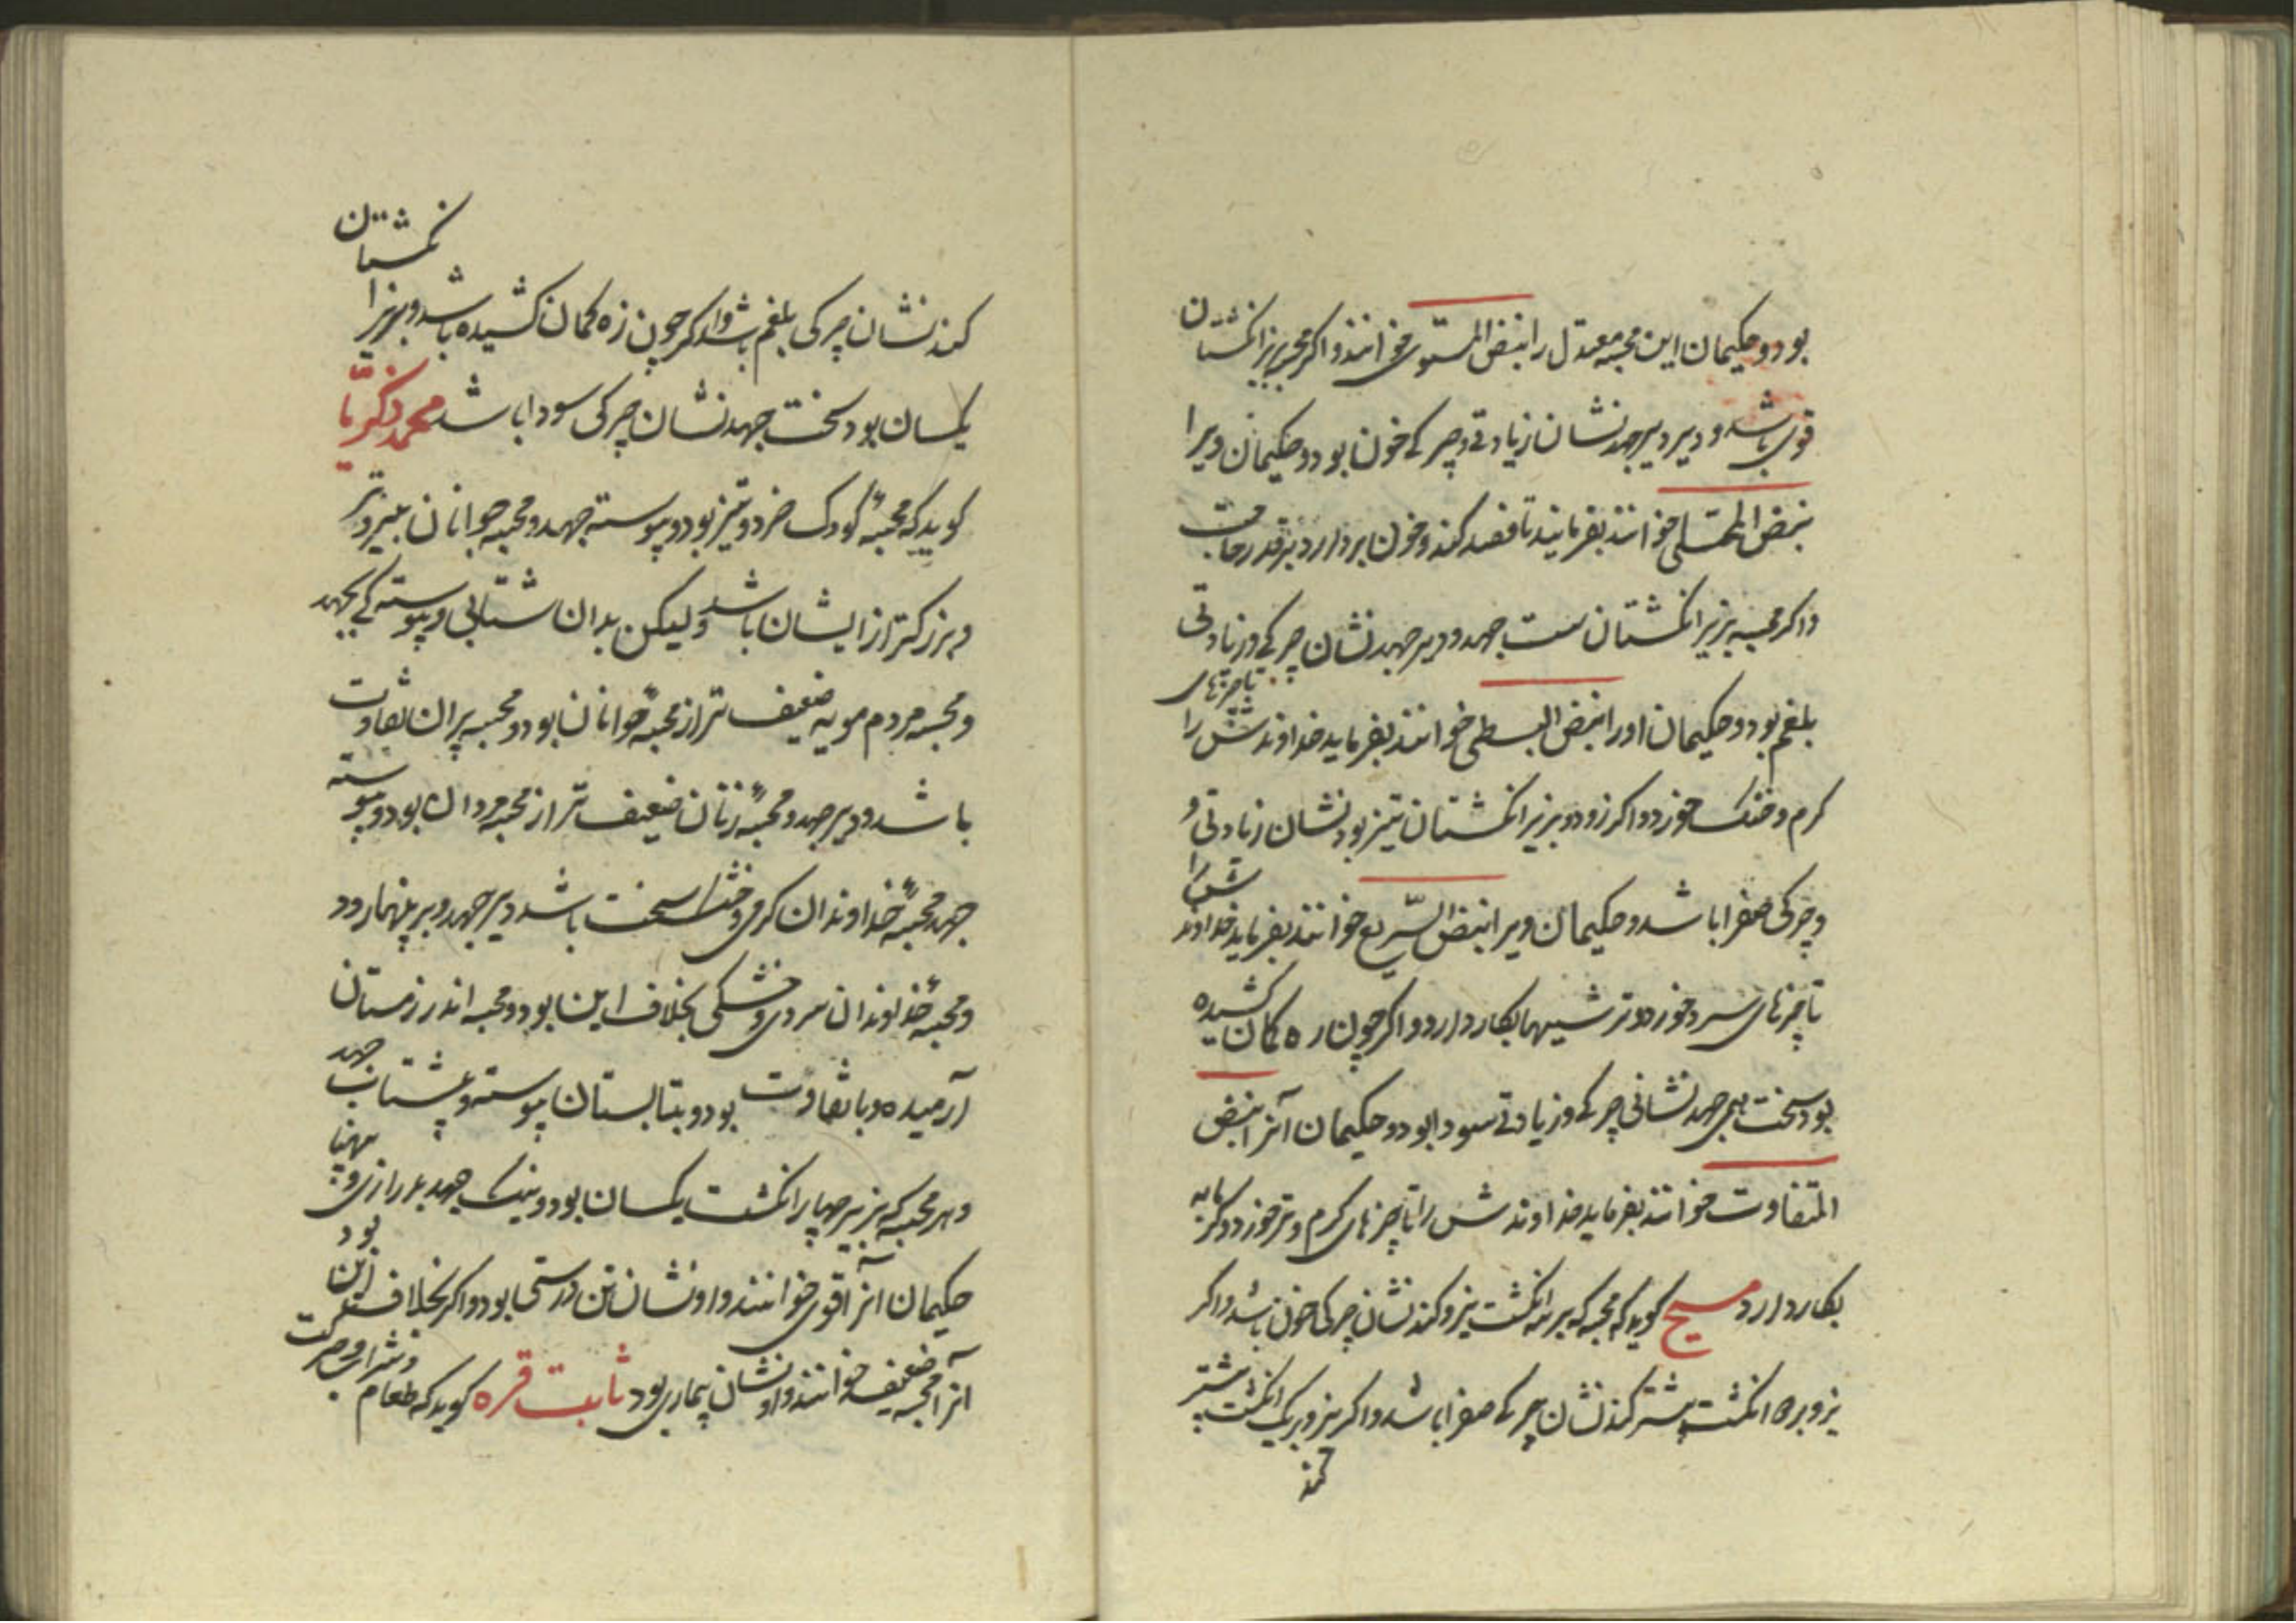 بود و حکیمان این مجسه معتدل را نبض المستوی خوانند و اگر مجسه بزیر انکشتان
قوی باشد و دیر دیر جهد نشان زیادتی و چیرکی خون بود و حکیمان ویرا
نبض الممتلی خوانند بفرمایند تا فصد کند و خون بردارد بر قدر حاجت
و اکر مجسه بزیر انکشتان سست جهد و دیر جهد نشان چیرکی و زیادتی
بلغم بود و حکیمان او را نبض البسطی خوانند بفرماید خداوندش را تا چیزهای
کرم و خشک خورد و اکر زود و بزیر انکشتان تیز بود نشان زیادتی و
و چیرکی صفرا باشد و حکیمان ویرا نبض السریع خوانند بفرماید خداوندش را
تا چیزهای سرد خورد و ترشیها بکار دارد و اکر چون زه کمان کشیده
بود سخت همی جهد نشانی چیرکی و زیادتی سودا بود و حکیمان آنرا نبض
المتفاوت خوانند بفرماید خداوندش را تا چیزهای کرم و تر خورد و کرمابه
بکار دارد مسیح کوید که مجسه که بر سه انکشت نیرو کند نشان چیرکی خون باشد و اکر
نیرو بر دو انکشت بیشتر کند نشان چیرکی صفرا باشد و اکر نیرو بر یک انکشت بیشتر
کند نشان چیرکی بلغم باشد و اکر چون زه کمان کشیده باشد و بزیر انکشتان
یکسان بود سخت جهد نشان چیرکی سودا باشد محمد زکریا
کوید که مجسهٔ کودک خرد و تیز بود و پیوسته جهد و مجسه جوانان بنیروتر
و بزرکتر از ایشان باشد ولیکن بدان شتابی و پیوستکی نجهد
و مجسه مردم مویه ضعیف تر از مجسهٔ جوانان بود و مجسه پیران تفاوت
باشد و دیر جهد و مجسهٔ زنان ضعیف تر از مجسه مردان بود و پیوسته
جهد مجسهٔ خداوندان کرمی و خشک سخت باشد دیر جهد و بر پهنا رود
و مجسهٔ خداوندان سردی و خشکی بخلاف این بود و مجسه اندر زمستان
آرمیده و با تفاوت بود و بتابستان پیوسته و بشتاب جهد
و هر مجسه که بزیر چهار انکشت یکسان بود و نیک جهد بدرازی و پهنا
حکیمان آنرا قوی خوانند و او نشان تن درستی بود و اکر بخلاف این بود
آنرا مجسه ضعیف خوانند و او نشان بیماری بود ثابت قره کوید که طعام و شراب و حرکت